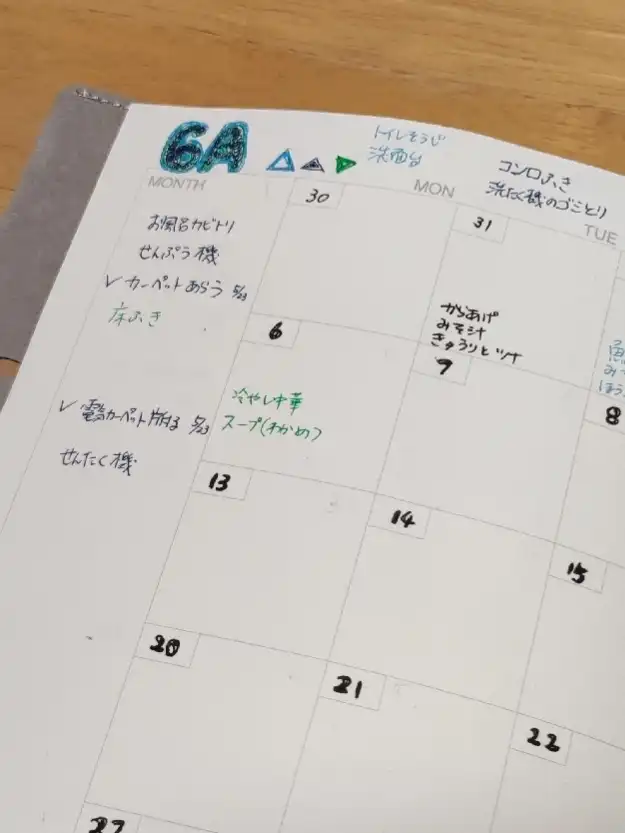 6A
トイレそうじ
洗面台
コンロふき
洗たく機のゴミとり
MONTH
MON
TUE
お風呂カビトリ
せんぷう機
✓カーペットあらう 5/23
床ふき
✓電気カーペット片付る 5/23
せんたく機
30
31
からあげ
みそ汁
きゅうりとツナ
6
冷やし中華
スープ(わかめ)
7
8
13
14
15
20
21
22
27